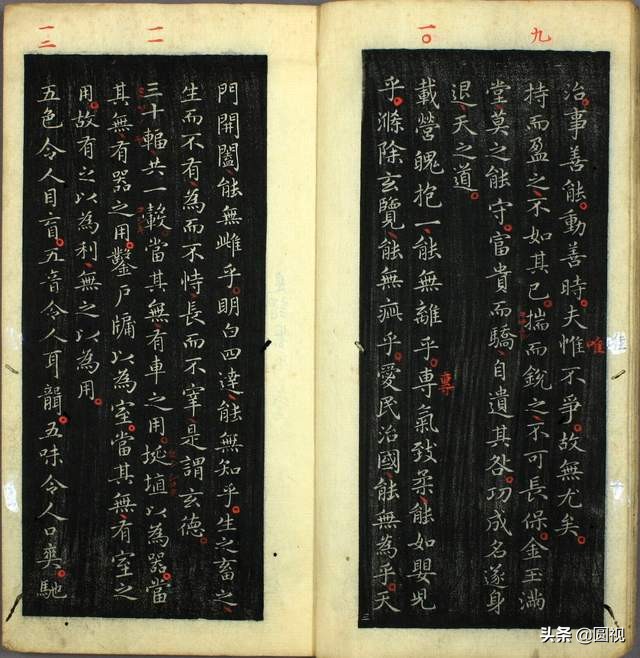 九
治。事善能。動善時。夫惟不爭。故無尤矣。
唯
持而盈之、不如其已。揣而銳之、不可長保。金玉滿
堂、莫之能守。富貴而驕、自遺其咎。功成名遂身
退、天之道。
一〇
載營魄抱一、能無離乎。專氣致柔、能如嬰兒
專
乎。滌除玄覽、能無疵乎。愛民治國、能無為乎。天
門開闔、能無雌乎。明白四達、能無知乎。生之畜之、
生而不有、為而不恃、長而不宰、是謂玄德。
一一
三十輻、共一轂、當其無、有車之用。埏埴以為器。當
其無、有器之用。鑿戶牖以為室。當其無、有室之
用。故有之以為利、無之以為用。
一二
五色令人目盲。五音令人耳聾。五味令人口爽。馳
头条 @圆视